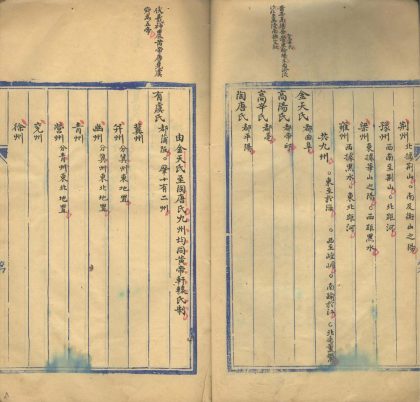 荆州 北據荆山。南及衡山之陽
豫州 西南至荆山。北距河
梁州 東據華山之陽。西距黑水
雍州 西據黑水。東北距河
共九州。東至於海。西至崆峒。南踰於江。北逐葷粥
金天氏 都曲阜
高陽氏 都帝邱
高辛氏 都亳
陶唐氏 都平陽
由金天氏至陶唐氏九州均同黄帝軒轅氏制
有虞氏 都蒲阪。肇十有二州
冀州
并州 分冀州東地置
幽州 分冀州東北地置
營州 分青州東北地置
青州
兖州
徐州
伏羲神農黄帝唐堯虞
舜為五帝